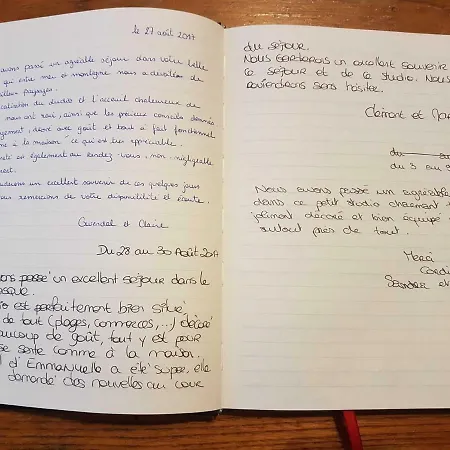 le 27 août 2017
avons passé un agréable séjour dans votre belle
qui entre mer et montagne nous a dévoilé de
paysages.
localisation du studio et l'accueil chaleureux de
nous ont ravi, ainsi que les précieux conseils donnés
logement, décoré avec goût et tout à fait fonctionnel
à la maison" ce qui est très appréciable.
est également au rendez-vous, non négligeable
un excellent souvenir de ces quelques jours
vous remercions de votre disponibilité et écoute.
Gwendal et Claire
Du 28 au 30 Août 2017
passé un excellent séjour dans le
est parfaitement bien situé
de tout (plages, commerces,...) décoré
beaucoup de goût, tout y est pour
se sente comme à la maison
d'Emmanuelle a été super, elle
demandé des nouvelles au cour
du séjour.
Nous garderons un excellent souvenir
le séjour et de le studio. Nous
reviendrons sans hésiter.
Clément et
du
du 3 au
Nous avons passé un agréable
dans ce petit studio charmant
joliment décoré et bien équipé
surtout près de tout.
Merci
Sandra et